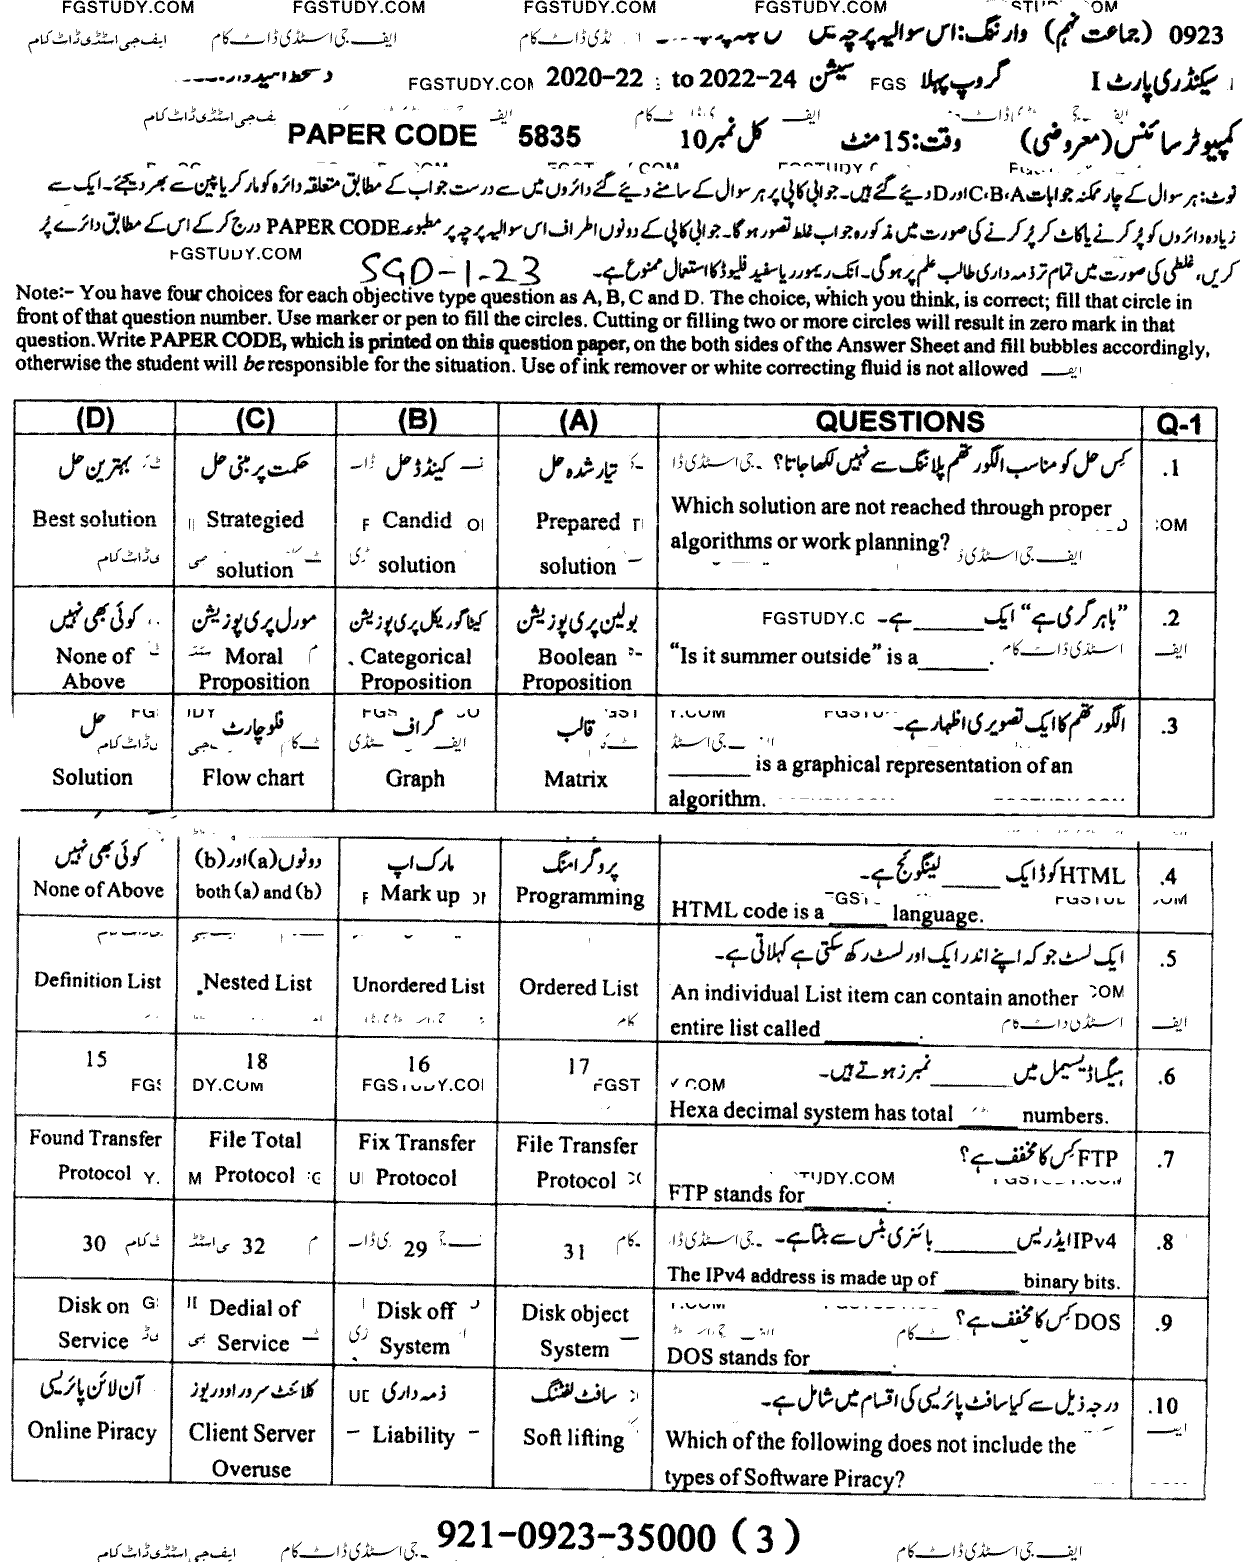 FGSTUDY.COM FGSTUDY.COM FGSTUDY.COM FGSTUDY.COM
0923 (جماعت نہم) وارننگ: اس سوالیہ پرچہ میں
ایف جی اسٹڈی ڈاٹ کام ایف جی اسٹڈی ڈاٹ کام
سیکنڈری پارٹ I گروپ پہلا FGS سیشن 2020-22 to 2022-24 FGSTUDY.COM دستخط امیدوار
کمپیوٹر سائنس (معروضی) وقت: 15 منٹ کل نمبر 10 PAPER CODE 5835
نوٹ: ہر سوال کے چار ممکنہ جوابات C،B،A اور D دیئے گئے ہیں۔ جوابی کاپی پر ہر سوال کے سامنے دیئے گئے دائروں میں سے درست جواب کے مطابق متعلقہ دائرہ کو مارکر یا پین سے بھر دیجئے۔ ایک سے
زیادہ دائروں کو پُر کرنے یا کاٹ کر پُر کرنے کی صورت میں مذکورہ جواب غلط تصور ہوگا۔ جوابی کاپی کے دونوں اطراف اس سوالیہ پرچہ پر مطبوعہ PAPER CODE درج کر کے اس کے مطابق دائرے پُر
کریں، غلطی کی صورت میں تمام تر ذمہ داری طالب علم پر ہوگی۔ انک ریموور یا سفید فلیوڈ کا استعمال ممنوع ہے۔
FGSTUDY.COM
SGD-1-23
Note:- You have four choices for each objective type question as A, B, C and D. The choice, which you think, is correct; fill that circle in
front of that question number. Use marker or pen to fill the circles. Cutting or filling two or more circles will result in zero mark in that
question.Write PAPER CODE, which is printed on this question paper, on the both sides of the Answer Sheet and fill bubbles accordingly,
otherwise the student will be responsible for the situation. Use of ink remover or white correcting fluid is not allowed
(D) (C) (B) (A) QUESTIONS Q-1
بہترین حل حکمت پر مبنی حل کینڈڈ حل تیار شدہ حل کس حل کو مناسب الگورتھم پلاننگ سے نہیں لکھا جاتا؟ .1
Best solution Strategied Candid Prepared Which solution are not reached through proper
solution solution solution algorithms or work planning?
کوئی بھی نہیں مورل پری پوزیشن کیٹاگوریکل پری پوزیشن بولین پری پوزیشن "باہر گرمی ہے" ایک ______ ہے۔ .2
None of Moral Categorical Boolean "Is it summer outside" is a______.
Above Proposition Proposition Proposition
حل فلوچارٹ گراف قالب الگورتھم کا ایک تصویری اظہار ہے۔ .3
Solution Flow chart Graph Matrix ______ is a graphical representation of an
algorithm.
کوئی بھی نہیں دونوں (a) اور (b) مارک اپ پروگرامنگ HTML کوڈ ایک _____ لینگوئج ہے۔ .4
None of Above both (a) and (b) Mark up Programming HTML code is a _____ language.
ایک لسٹ جو کہ اپنے اندر ایک اور لسٹ رکھ سکتی ہے کہلاتی ہے۔ .5
Definition List Nested List Unordered List Ordered List An individual List item can contain another
entire list called ______.
15 18 16 17 ہیگساڈیسیمل میں ______ نمبرز ہوتے ہیں۔ .6
Hexa decimal system has total ____ numbers.
Found Transfer File Total Fix Transfer File Transfer FTP کس کا مخفف ہے؟ .7
Protocol Protocol Protocol Protocol FTP stands for______.
30 32 29 31 IPv4 ایڈریس ______ بائنری بٹس سے بنتا ہے۔ .8
The IPv4 address is made up of _____ binary bits.
Disk on Dedial of Disk off Disk object DOS کس کا مخفف ہے؟ .9
Service Service System System DOS stands for______.
آن لائن پائریسی کلائنٹ سرور اووریوز ذمہ داری سافٹ لفٹنگ درجہ ذیل سے کیا سافٹ پائریسی کی اقسام میں شامل ہے۔ .10
Online Piracy Client Server Liability Soft lifting Which of the following does not include the
Overuse types of Software Piracy?
921-0923-35000 (3)
ایف جی اسٹڈی ڈاٹ کام جی اسٹڈی ڈاٹ کام ایف جی اسٹڈی ڈاٹ کام